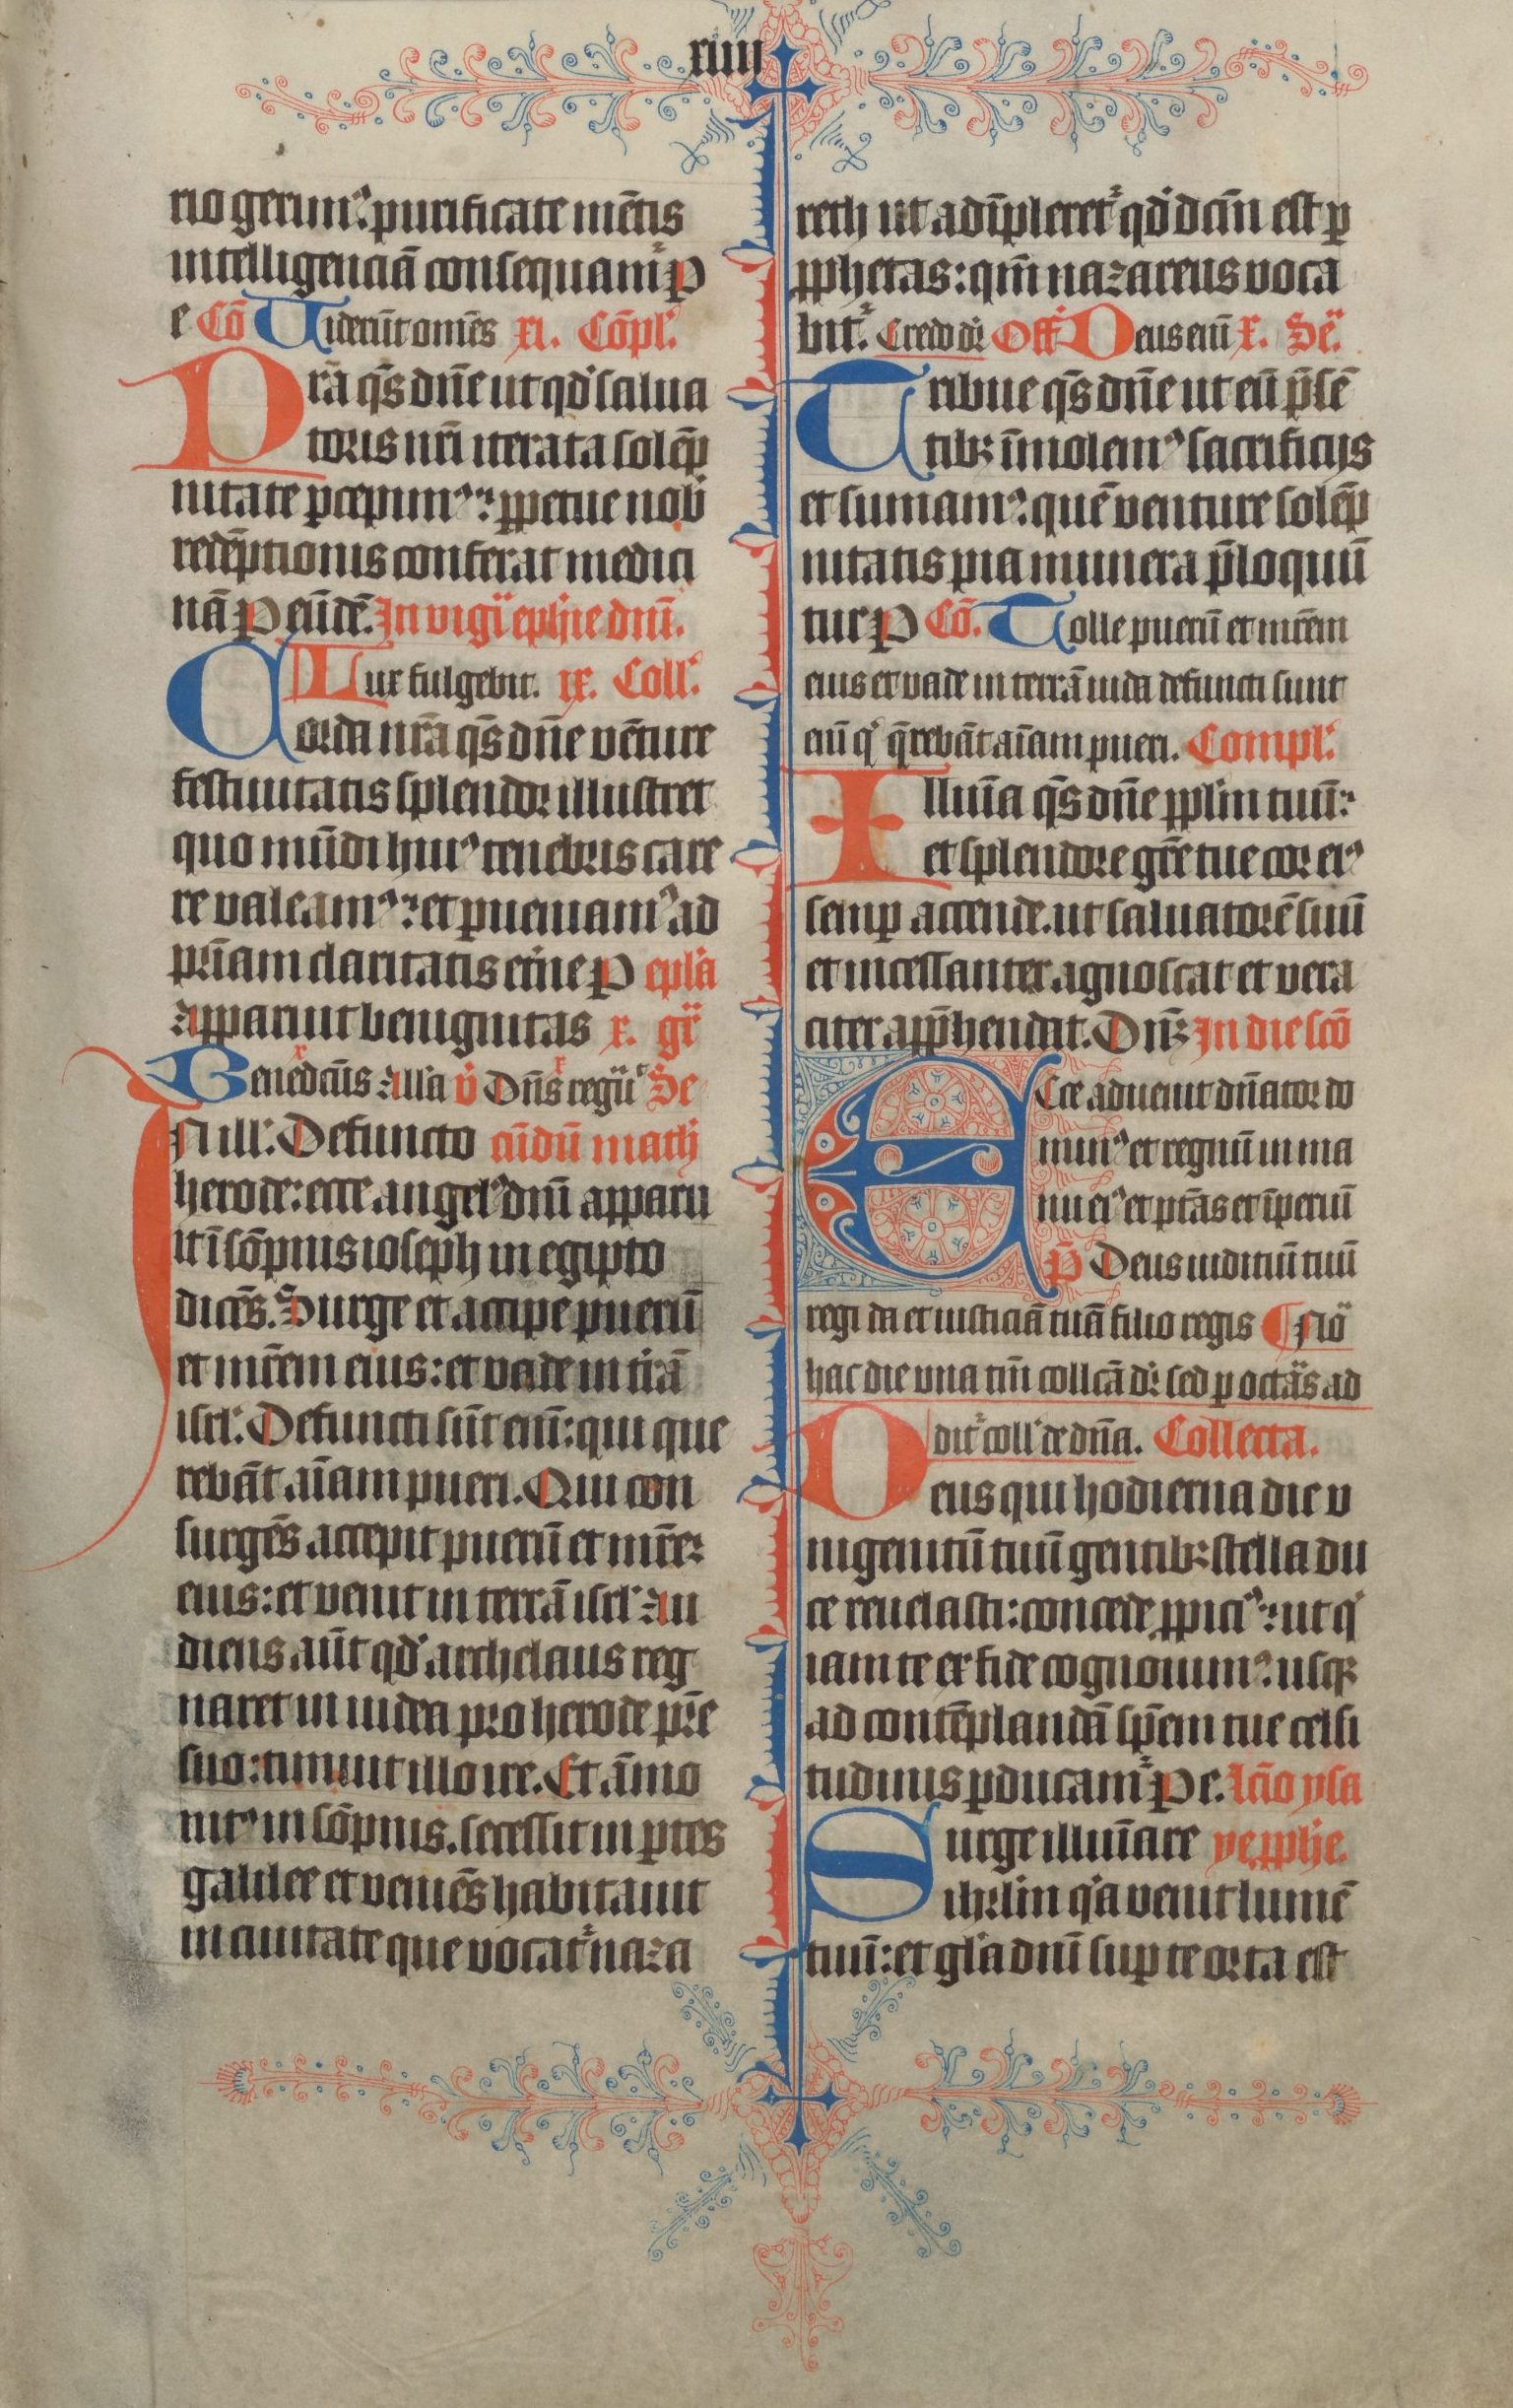 xiiii
rio gerim⁹. purificate mētis
intelligenciā consequam̄ P
e Cō Uiderūt omēs xi. Cōpl'.
Prā q̄s dn̄e ut qd' salua
toris nr̄i iterata solēp
nitate p̄cepim⁹: ꝑpetue nob'
redēptionis conferat medici
nā P eūdē. In vigi' eph̄ie dn̄i.
Lux fulgebit. ix. Coll'.
Corda nr̄a q̄s dn̄e vēture
festiuitatis splendor illustret
quo mūdi hui⁹ tenebris care
re valeam⁹: et ꝑueniam⁹ ad
pr̄iam claritatis et̄ne P epl'a
Apparuit benignitas x. gr̄
Benedc̄us Alla v̄ Dn̄s regn̄ Se
In ill'. Defuncto c̄idū math'
herode: ecce angel⁹ dn̄i apparu
it ī sōpnis ioseph in egipto
dicēs. Surge et accipe puerū
et mr̄em eius: et vade in tr̄ā
isrl'. Defuncti sūt enī: qui que
rebāt aīam pueri. Qui con
surgēs accepit puerū et mr̄ē
eius: et venit in terrā isrl'. Au
diens aūt qd' archelaus reg
naret in iudea pro herode pr̄e
suo: timuit illo ire. Et āmo
nit⁹ in sōpnis. secessit in ꝑtes
galilee et veniēs habitauit
in ciuitate que vocat̄ naza
reth ut adīpleret̄ qd' dcm̄ est ꝑ
ꝓphetas: qm̄ nazareus voca
bit̄. Credo dr̄ Off' Deus enī x. Se'.
Tribue q̄s dn̄e ut eū p̄sē
tib; īmolem⁹ sacrificijs
et sumam⁹. quē venture solēp
nitatis pia munera p̄loquū
tur P Cō. Tolle puerū et mr̄em
eius et vade in terrā iuda defuncti sunt
enī q' q̄rebāt aīam pueri. Compl'.
Illuīa q̄s dn̄e ppl'm tuū:
et splendore gr̄e tue cor ei⁹
semꝑ accende. ut saluatorē suū
et incessanter agnoscat et vera
citer app̄hendat. Dn̄; In die scō
Ecce aduenit dn̄ator do
min⁹ et regnū in ma
nu ei⁹ et ptās et īperiū
P̄ Deus iuditiū tuū
regi da et iusticiā tuā filio regis Nō
hac die una tm̄ collcā dr̄ sed ꝑ octās ad
dit̄ coll' de dn̄a. Collecta.
Deus qui hodierna die v
nigenitū tuū gentib; stella du
ce reuelasti: concede ꝓpici⁹: ut q'
iam te ex fide cognouim⁹. usqꝫ
ad contēplandā sp̄em tue celsi
tudinis ꝑducam̄ P e. Lc̄io ysa
Surge illuīare ye ꝓphe.
ihrl'm q'a venit lumē
tuū: et gl'a dn̄i suꝑ te orta est